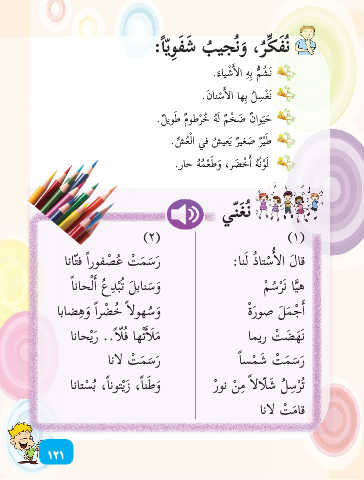 نُفَكِّرُ، وَنُجيبُ شَفَوِيّاً:
نَشُمُّ بِهِ الأَشْياءَ.
نَغْسِلُ بِها الأَسْنانَ.
حَيَوانٌ ضَخْمٌ لَهُ خُرْطومٌ طَويلٌ.
طَيْرٌ صَغيرٌ يَعيشُ في الْعُشِّ.
لَوْنُهُ أَخْضَر، وَطَعْمُهُ حار.
نُغَنّي
(١)
قالَ الأُسْتاذُ لَنا:
هيَّا نَرْسُمْ
أَجْمَلَ صورَةْ
نَهَضَتْ ريما
رَسَمَتْ شَمْساً
تُرْسِلُ شَلّالاً مِنْ نورْ
قامَتْ لانا
(٢)
رَسَمَتْ عُصْفوراً فتّانا
وَسَنابِلَ تُبْدِعُ أَلْحاناً
وَسُهولاً خُضْراً وَهِضابا
مَلَأَتْها فُلّاً.. رَيْحانا
رَسَمَتْ لانا
وَطَناً، زَيْتوناً، بُسْتانا
١٢١